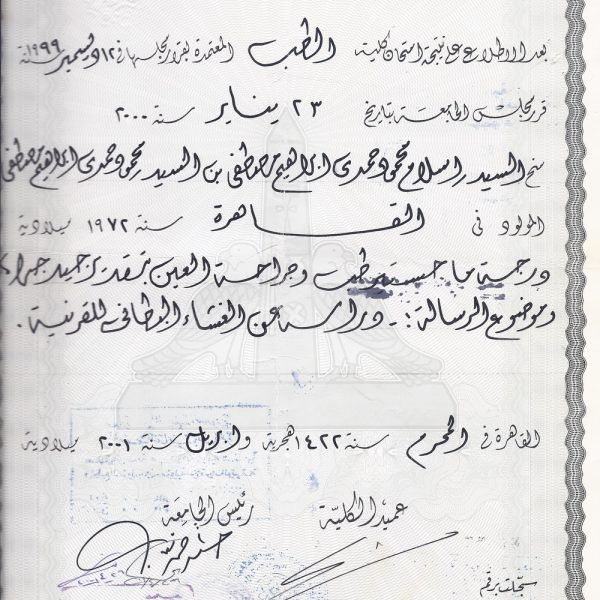 بعد الاطلاع على نتيجة امتحان كلية الطب المعتمدة بقرار مجلسها في ١٢ ديسمبر سنة ١٩٩٩
قرر مجلس الجامعة بتاريخ ٢٣ يناير سنة ٢٠٠٠
منح السيد / اسلام محمود حمدى ابراهيم مصطفى بن السيد / محمود حمدى ابراهيم مصطفى
المولود في القاهرة سنة ١٩٧٢ ميلادية
درجة ماجستير طب وجراحة العين بتقدير جيد جدا
وموضوع الرسالة :- دراسة عن الغشاء البطانى للقرنية .
القاهرة في المحرم سنة ١٤٢٢ هجرية وابريل سنة ٢٠٠١ ميلادية
عميد الكلية رئيس الجامعة
سجلت برقم